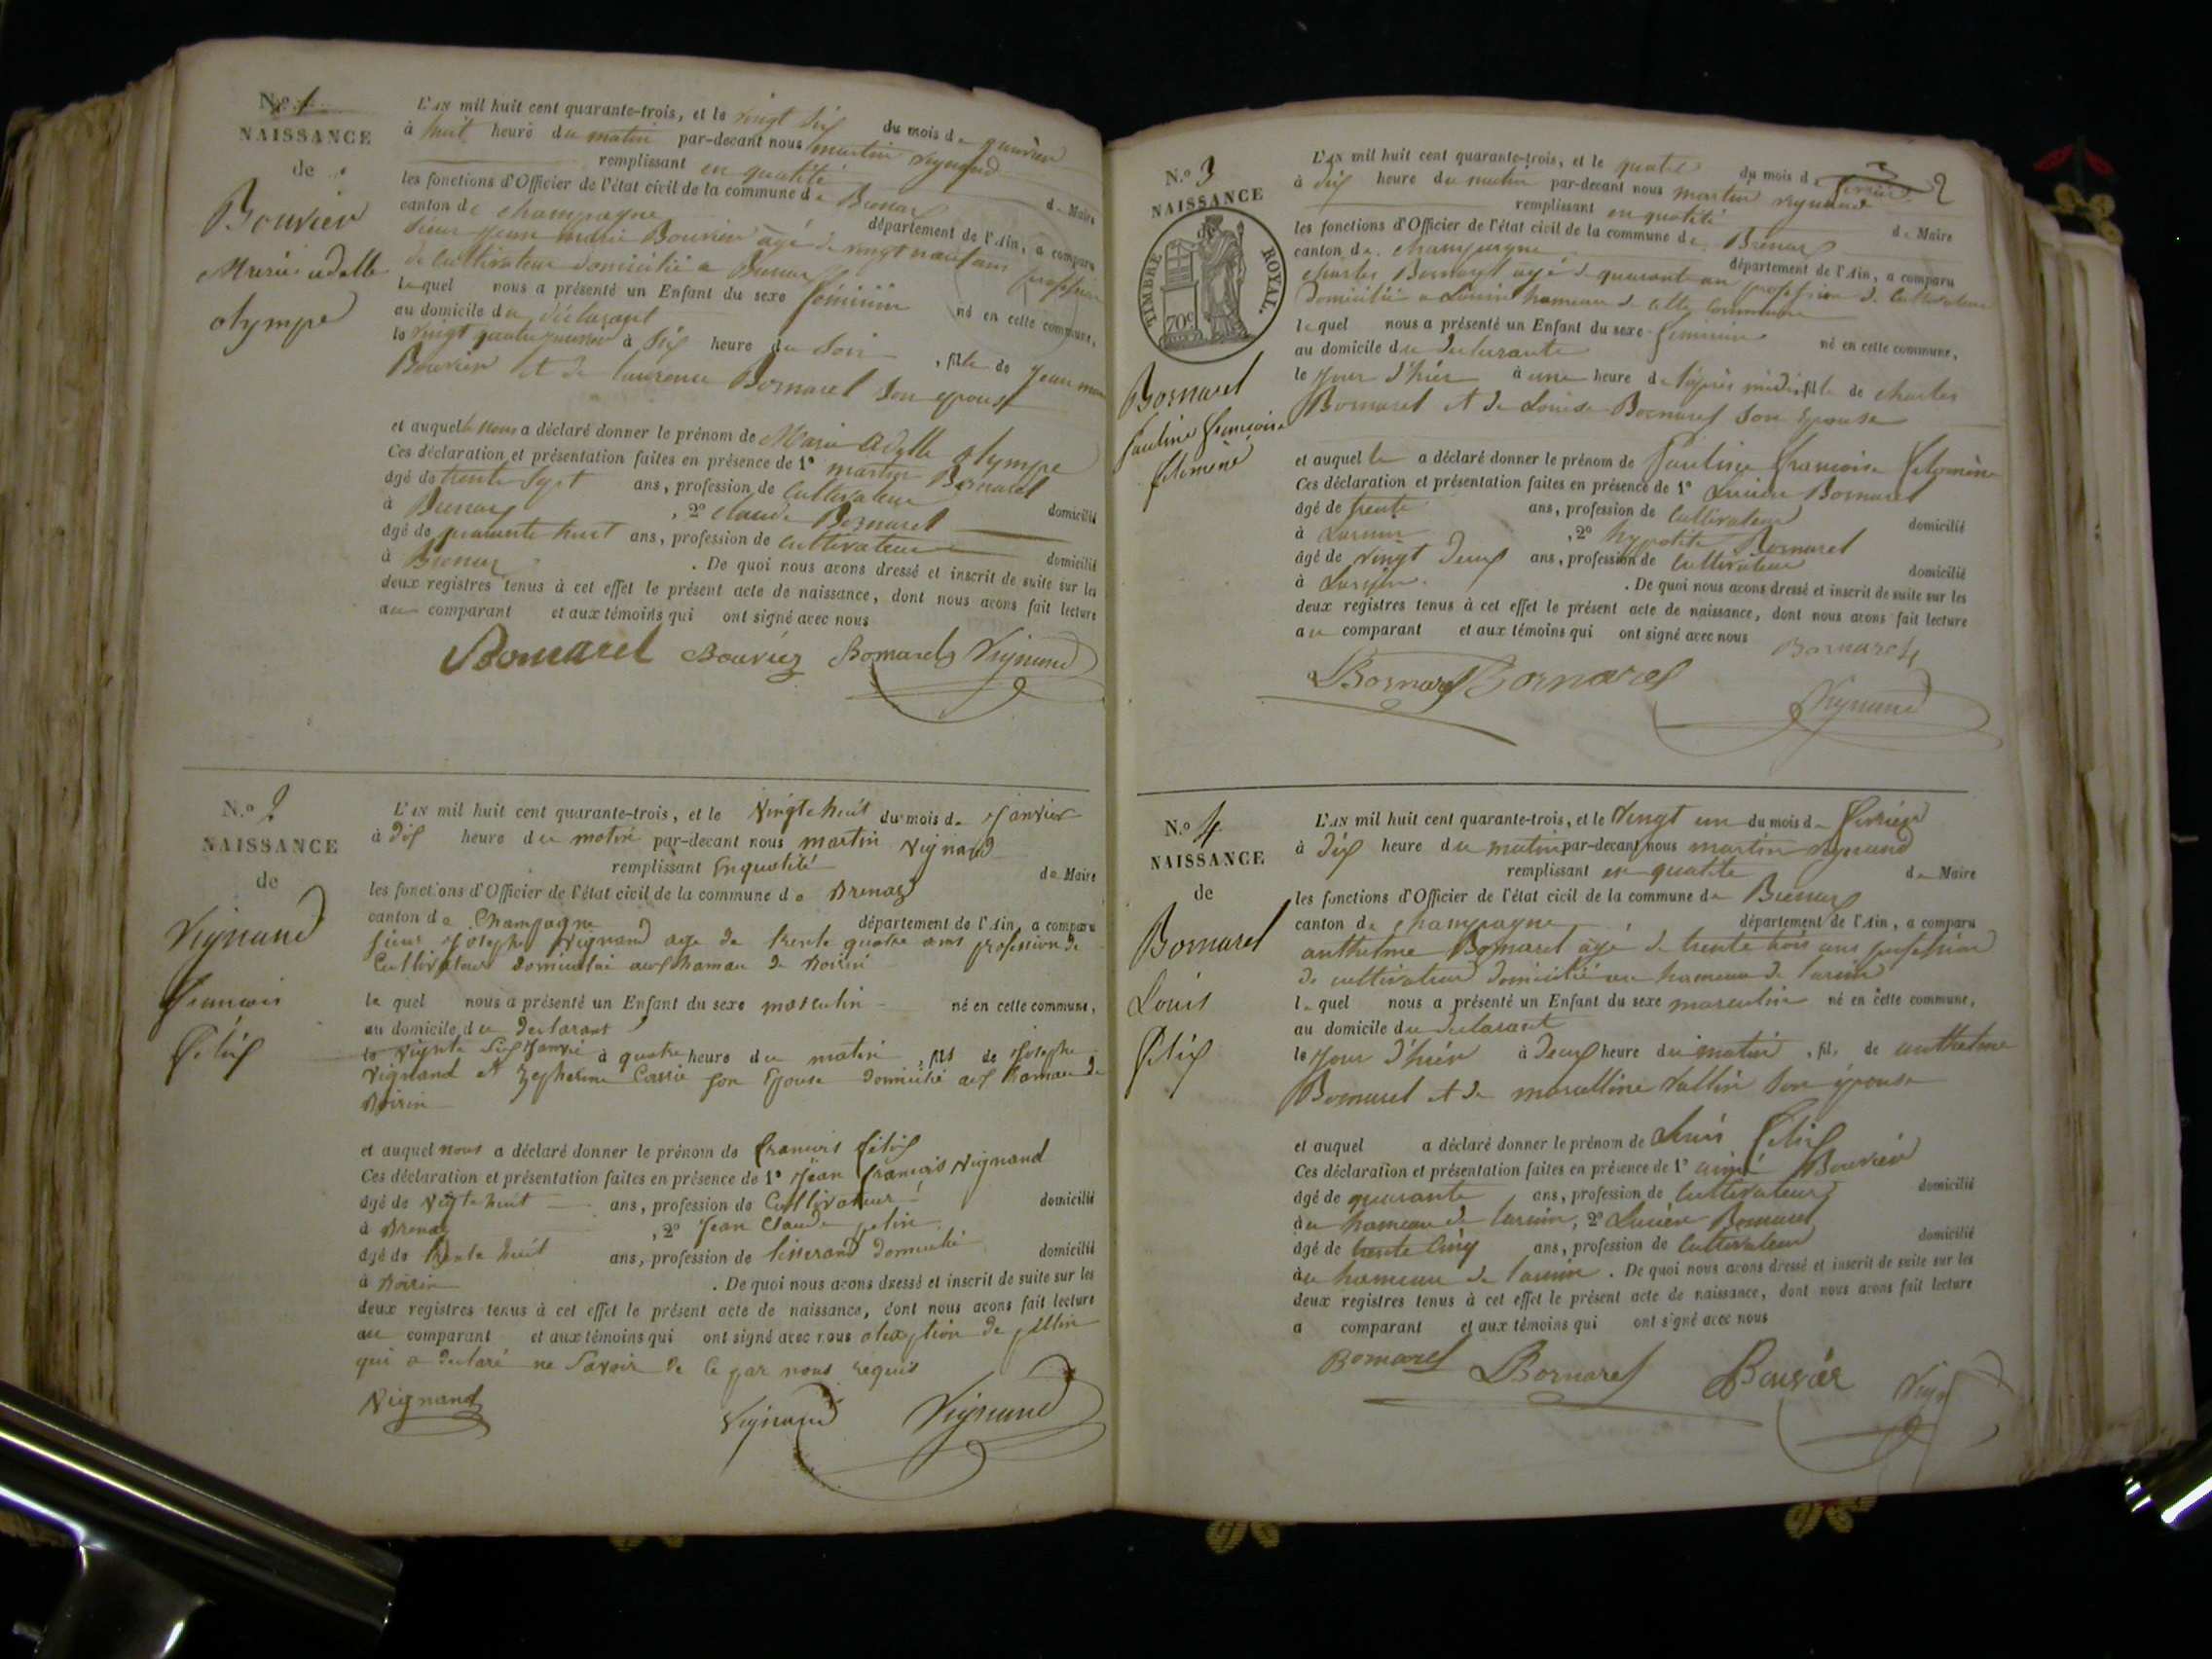 N.o 1
NAISSANCE
de
Bouvier
Marie adelle
olympe
L'AN mil huit cent quarante-trois, et le vingt six du mois de janvier
à huit heure du matin par-devant nous martin vignand
remplissant en qualité de Maire
les fonctions d'Officier de l'état civil de la commune de Brenaz
canton de champagne département de l'Ain, a comparu
sieur jean marie Bouvier agé de vingt neuf ans profession
de cultivateur domicilié a Brenaz
lequel nous a présenté un Enfant du sexe féminin né en cette commune,
au domicile du déclarant
le vingt quatre à six heure du soir, fille de jean marie
Bouvier et de laurence Bornarel son epouse
et auquel le nous a déclaré donner le prénom de Marie adelle olympe
Ces déclaration et présentation faites en présence de 1° martin Bornarel
âgé de trente sept ans, profession de cultivateur domicilié
à Brenaz, 2° claude Bornarel
âgé de quarante huit ans, profession de cultivateur domicilié
à Brenaz. De quoi nous avons dressé et inscrit de suite sur les
deux registres tenus à cet effet le présent acte de naissance, dont nous avons fait lecture
au comparant et aux témoins qui ont signé avec nous
Bornarel Bouvier Bornarel Vignand
N.o 2
NAISSANCE
de
Vignand
francois
félix
L'AN mil huit cent quarante-trois, et le vingte huit du mois de janvier
à dix heure du matin par-devant nous martin vignand
remplissant en qualité de Maire
les fonctions d'Officier de l'état civil de la commune de Brenaz
canton de Champagne département de l'Ain, a comparu
sieur joseph vignand age de trente quatre ans profession de
Cultivateur domicilié au hamau de
le quel nous a présenté un Enfant du sexe masculin né en cette commune,
au domicile du declarant
le vignte six janvié à quatre heure du matin, fils de joseph
vignand et Zepherine son Epouse domicilié au hamau de
et auquel nous a déclaré donner le prénom de francois félix
Ces déclaration et présentation faites en présence de 1° jean francois vignand
âgé de vigte huit ans, profession de Cultivateur domicilié
à Brenaz, 2° jean Claude
âgé de trente huit ans, profession de tisserand domicilié domicilié
à. De quoi nous avons dressé et inscrit de suite sur les
deux registres tenus à cet effet le présent acte de naissance, dont nous avons fait lecture
au comparant et aux témoins qui ont signé avec nous de
qui a declaré ne savoir de ce par nous requis
Vignand Vignand Vignand
2
N.o 3
NAISSANCE
de
TIMBRE ROYAL.
70c
Bornarel
pauline francoise
L'AN mil huit cent quarante-trois, et le quatre du mois de fevrier
à dix heure du matin par-devant nous martin vignand
remplissant en qualité de Maire
les fonctions d'Officier de l'état civil de la commune de Brenaz
canton de champagne département de l'Ain, a comparu
charles Bornarel agé de quarant un profession de cultivateur
domicilié a hameau de cette commune
le quel nous a présenté un Enfant du sexe feminin né en cette commune,
au domicile du declarante
le jour d'hier à une heure de l'après midi, fille de charles
Bornarel et de Louise Bornarel son épouse
et auquel le a déclaré donner le prénom de pauline francoise
Ces déclaration et présentation faites en présence de 1° Lucien Bornarel
âgé de trente ans, profession de cultivateur domicilié
à, 2° hypolite Bornarel
âgé de vingt deux ans, profession de cultivateur domicilié
à. De quoi nous avons dressé et inscrit de suite sur les
deux registres tenus à cet effet le présent acte de naissance, dont nous avons fait lecture
au comparant et aux témoins qui ont signé avec nous Bornarel
Bornarel Bornarel
Vignand
N.o 4
NAISSANCE
de
Bornarel
Louis
félix
L'AN mil huit cent quarante-trois, et le vingt un du mois de fevrier
à dix heure du matin par-devant nous martin vignand
remplissant en qualité de Maire
les fonctions d'Officier de l'état civil de la commune de Brenaz
canton de champagne département de l'Ain, a comparu
anthelme Bornarel agé de trente trois ans profession
de cultivateur domicilié au hameau de
le quel nous a présenté un Enfant du sexe masculin né en cette commune,
au domicile du declarant
le jour d'hier à deux heure du matin, fils de anthelme
Bornarel et de marcelline vallin son épouse
et auquel a déclaré donner le prénom de Louis félix
Ces déclaration et présentation faites en présence de 1° aimé Bouvier
âgé de quarante ans, profession de cultivateur domicilié
à au hameau de, 2° Lucien Bornarel
âgé de trente cinq ans, profession de cultivateur domicilié
à au hameau de. De quoi nous avons dressé et inscrit de suite sur les
deux registres tenus à cet effet le présent acte de naissance, dont nous avons fait lecture
a comparant et aux témoins qui ont signé avec nous
Bornarel Bornarel Bouvier